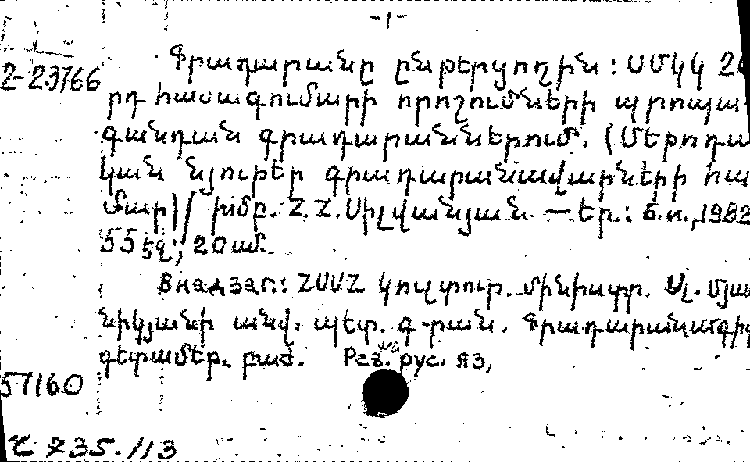 -1-
2-23766 Գրադարանը ընթերցողին: ՍՄԿԿ 26
րդ համագումարի որոշումների պրոպա
գանդան գրադարաններում. (Մեթոդա
կան նյութեր գրադարանավարների հա
մար)/ խմբ. Հ.Հ.Սիլվանյան. — Եր.: Բ.ո., 1982
55 էջ; 20 սմ.
В надзаг: ՀՍՍՀ կուլտուր. մինիստր. Ալ. Մյաս
նիկյանի անվ. պետ. գ-րան. Գրադարանագիտ
գետամեթ. բաժ. Рез. рус. яз,
57160
735.113